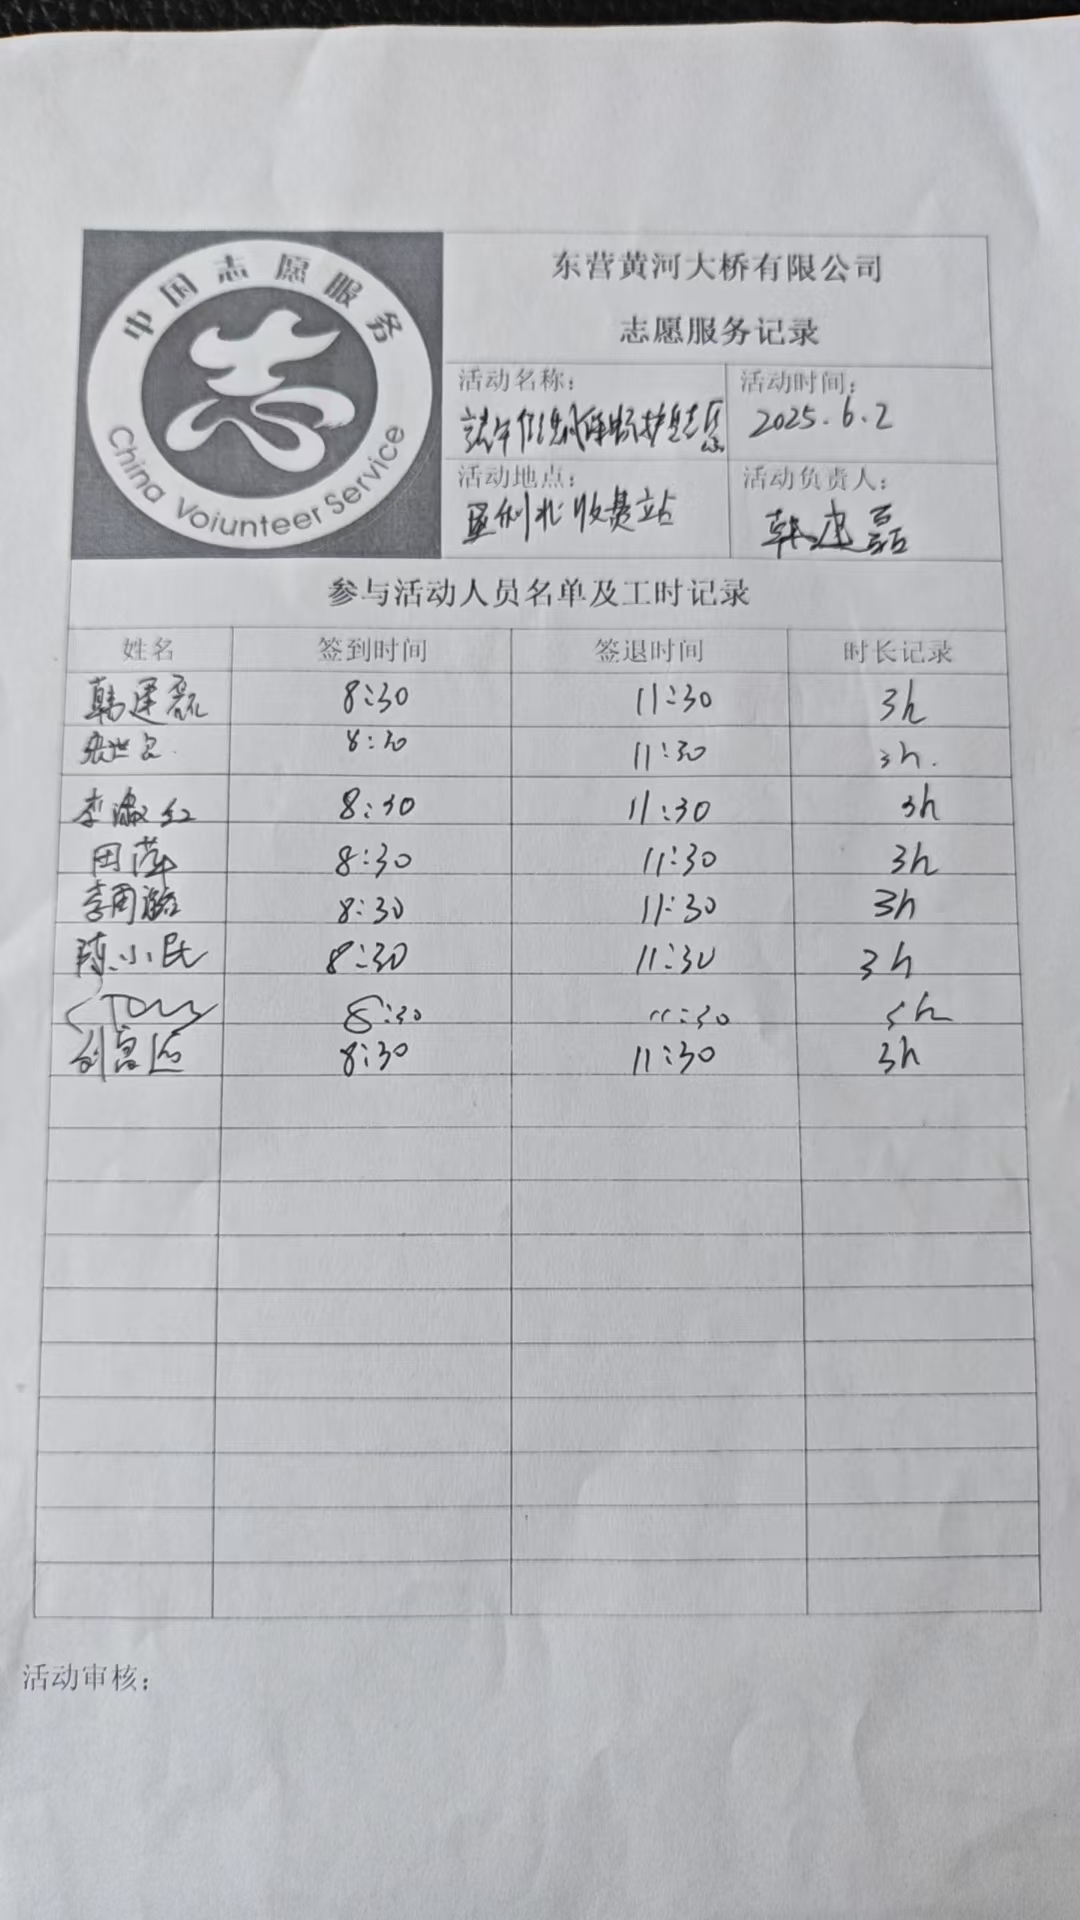 中国志愿服务
China Voiunteer Service
东营黄河大桥有限公司
志愿服务记录
活动名称：
端午
活动时间：
2025.6.2
活动地点：
垦利北收费站
活动负责人：
韩建磊
参与活动人员名单及工时记录
姓名 签到时间 签退时间 时长记录
韩建磊 8:30 11:30 3h
张世 8:30 11:30 3h.
李淑红 8:30 11:30 3h
田萍 8:30 11:30 3h
李雨 8:30 11:30 3h
陈小民 8:30 11:30 3h
8:30 11:30
刘 8:30 11:30 3h
活动审核：